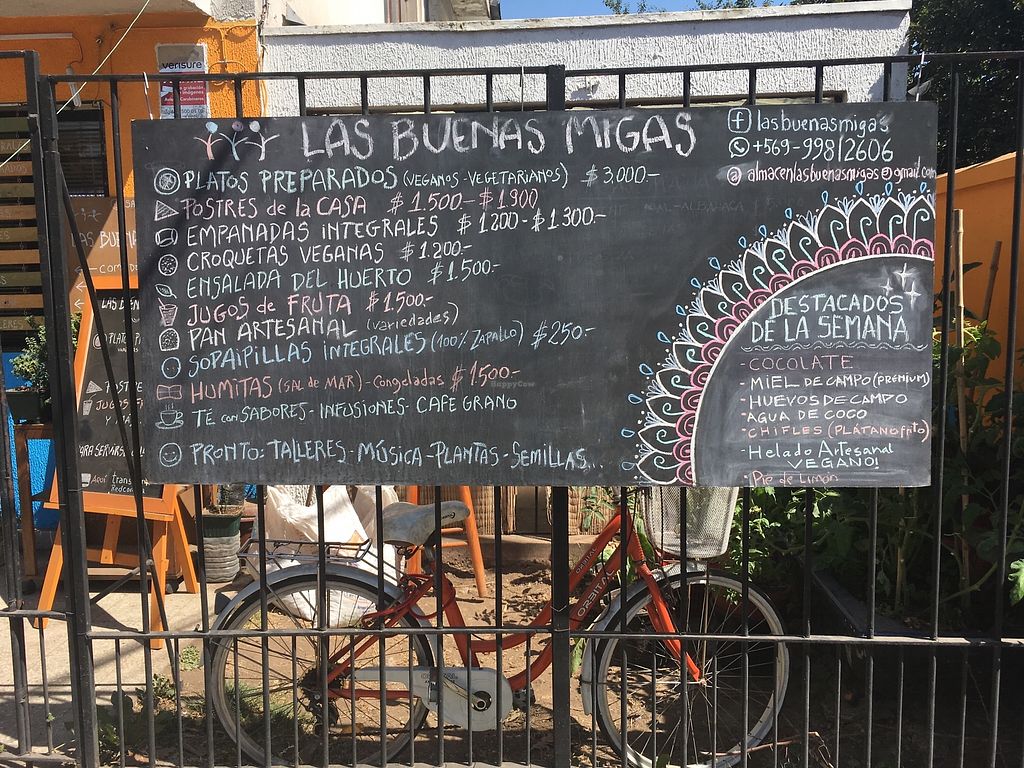 verisure
LAS BUENAS MIGAS
lasbuenasmigas
+569-99812606
almacenlasbuenasmigas@gmail.com
PLATOS PREPARADOS (VEGANOS-VEGETARIANOS) $3.000-
POSTRES de la CASA $1.500-$1.900
EMPANADAS INTEGRALES $1200-$1.300-
CROQUETAS VEGANAS $1.200-
ENSALADA DEL HUERTO $1.500-
JUGOS de FRUTA $1.500.-
PAN ARTESANAL (variedades)
SOPAIPILLAS INTEGRALES (100% ZAPALLO) $250.-
HUMITAS (SAL de MAR)-Congeladas $1.500-
TÉ con SABORES-INFUSIONES-CAFE GRANO
PRONTO: TALLERES-MÚSICA-PLANTAS-SEMILLAS...
DESTACADOS
DE LA SEMANA
-COCOLATE
-MIEL DE CAMPO (PREMIUM)
-HUEVOS DE CAMPO
-AGUA DE COCO
-CHIFLES (PLÁTANO frito)
-Helado Artesanal
VEGANO!
-Pie de Limón
HappyCow
ORBITAL